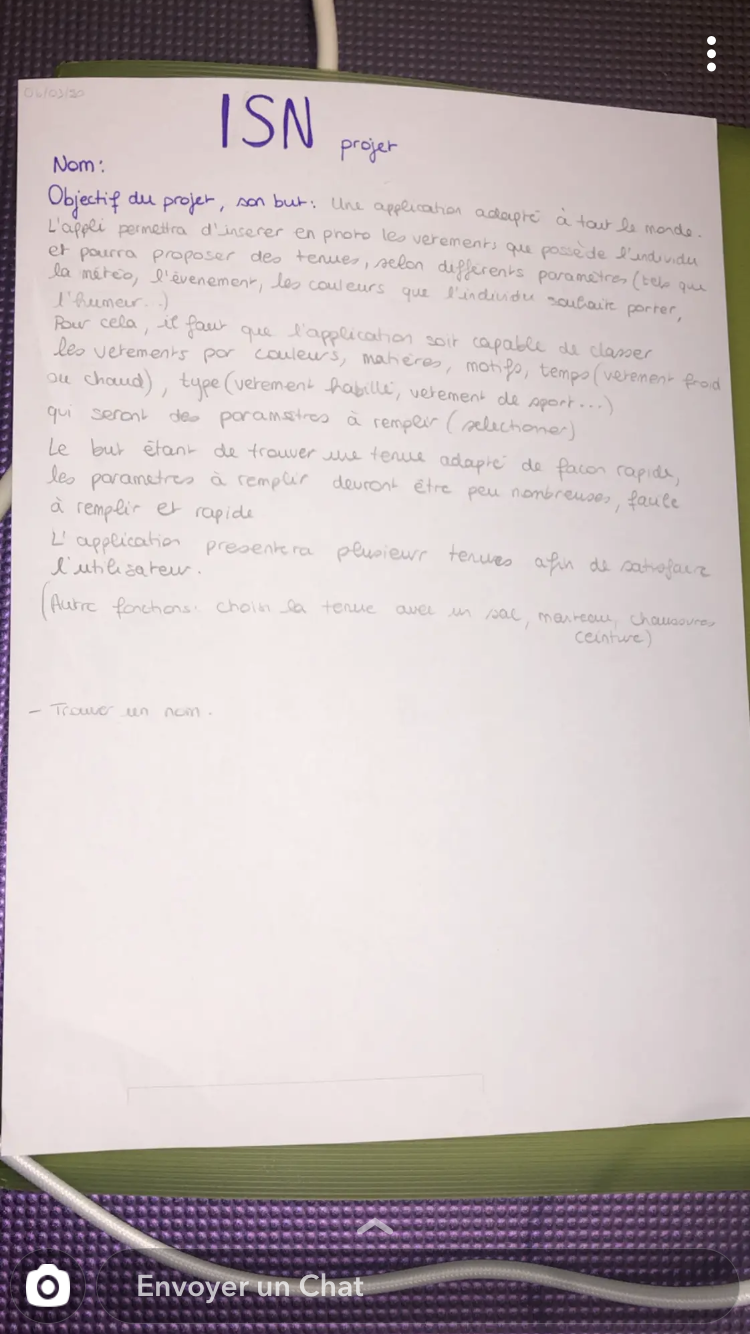 06/03/20
ISN projet
Nom:
Objectif du projet, son but: Une application adapté à tout le monde.
L'appli permettra d'inserer en photo les vetements que possède l'individu
et pourra proposer des tenues, selon différents paramètres (tels que
la météo, l'évenement, les couleurs que l'individu souhaite porter,
l'humeur...)
Pour cela, il faut que l'application soit capable de classer
les vetements par couleurs, matières, motifs, temps (vetement froid
ou chaud), type (vetement habillé, vetement de sport...)
qui seront des parametres à remplir (selectioner)
Le but étant de trouver une tenue adapté de facon rapide,
les parametres à remplir devront être peu nombreuses, facile
à remplir et rapide
L'application presentera plusieur tenues afin de satisfaire
l'utilisateur.
(Autre fonctions: choisir la tenue avec un sac, manteau, chaussures
ceinture)
- Trouver un nom.
Envoyer un Chat